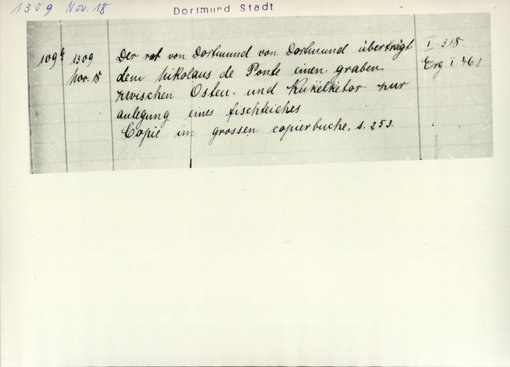 1309 Nov. 18
Dortmund Stadt
109a 1309 Nov. 18
Der rat von Dortmund von Dortmund überträgt
dem Nikolaus de Ponte einen graben
zwischen Osten- und Kukelketor zur
anlegung eines fischteiches
Copie im grossen copierbuche, s. 253.
I. 318.
Erg I. 761